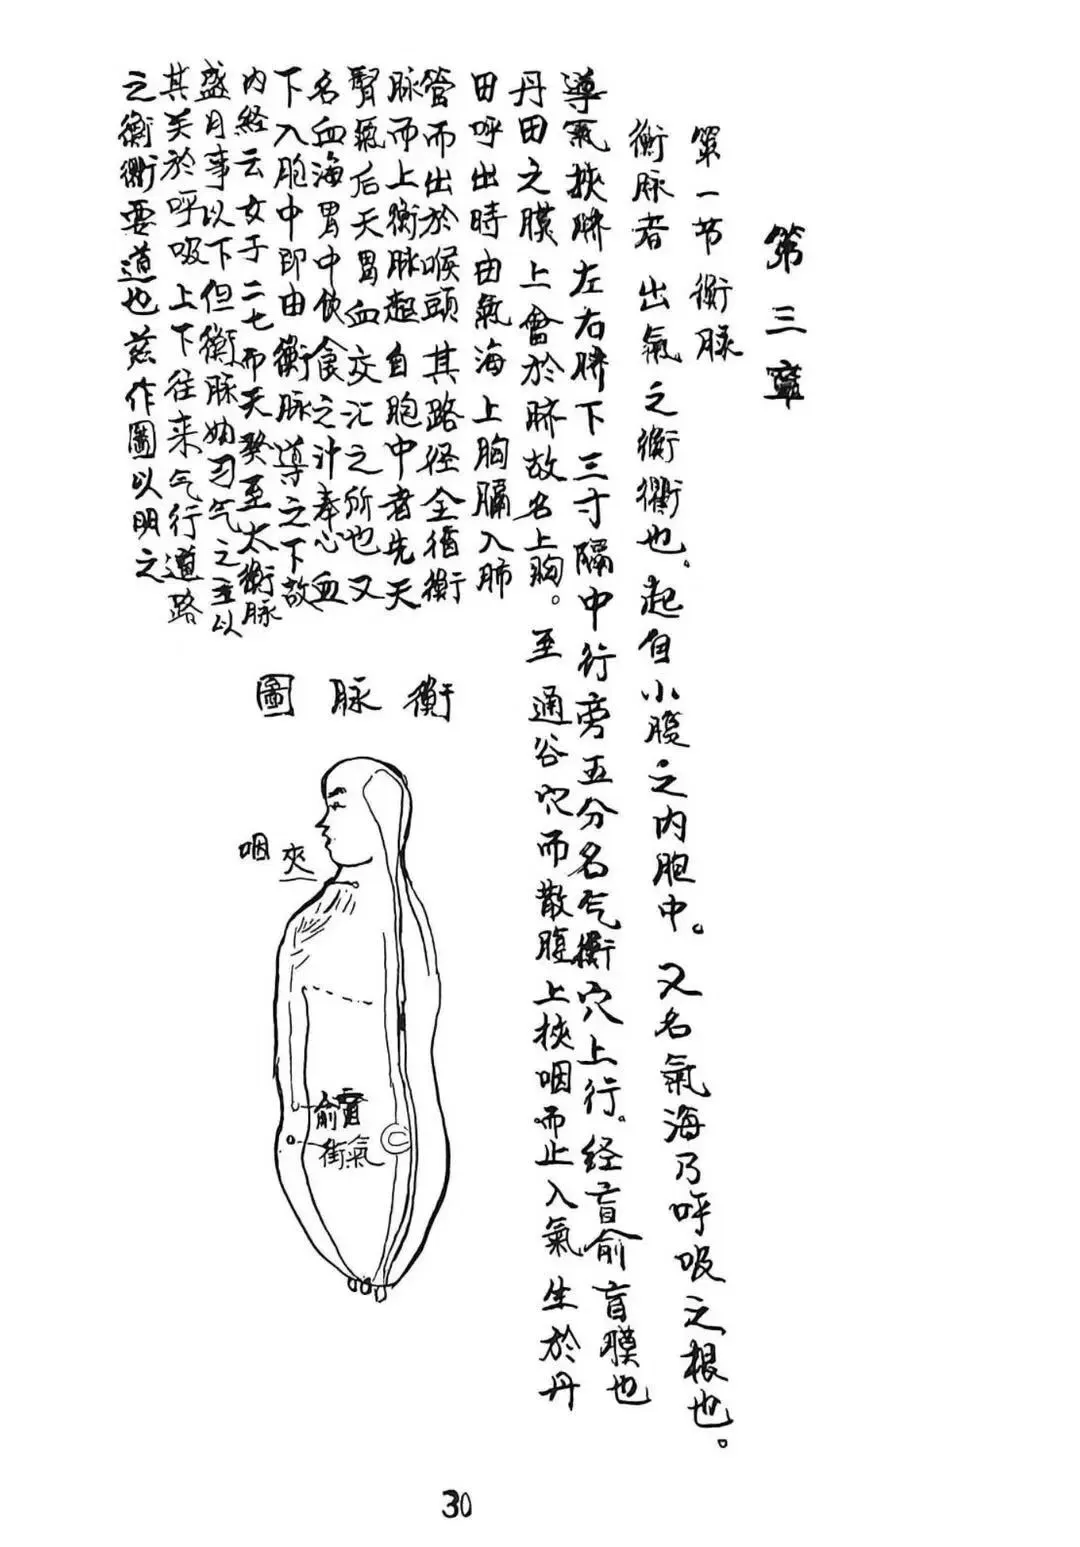 第三章
第一节 衝脉
衝脉者出氣之衝衢也、起自小腹之内胞中。又名氣海乃呼吸之根也。
導氣挾脐左右脐下三寸隔中行旁五分名气衝穴上行。经肓俞肓膜也
丹田之膜上會於脐故名上胸。至通谷穴而散腹上挾咽而止入氣生於丹
田呼出時由氣海上胸膈入肺
管而出於喉頭其路径全循衝
脉而上衝脉起自胞中者先天
腎氣后天胃血交汇之所也又
名血海胃中飲食之汁奉心血
下入胞中即由衝脉導之下故
内経云女子二七而天癸至太衝脉
盛月事以下但衝脉为气之主以
其关於呼吸上下往来气行道路
之衝衢要道也兹作圖以明之
圖脉衝
咽夾
俞肓
街氣
30